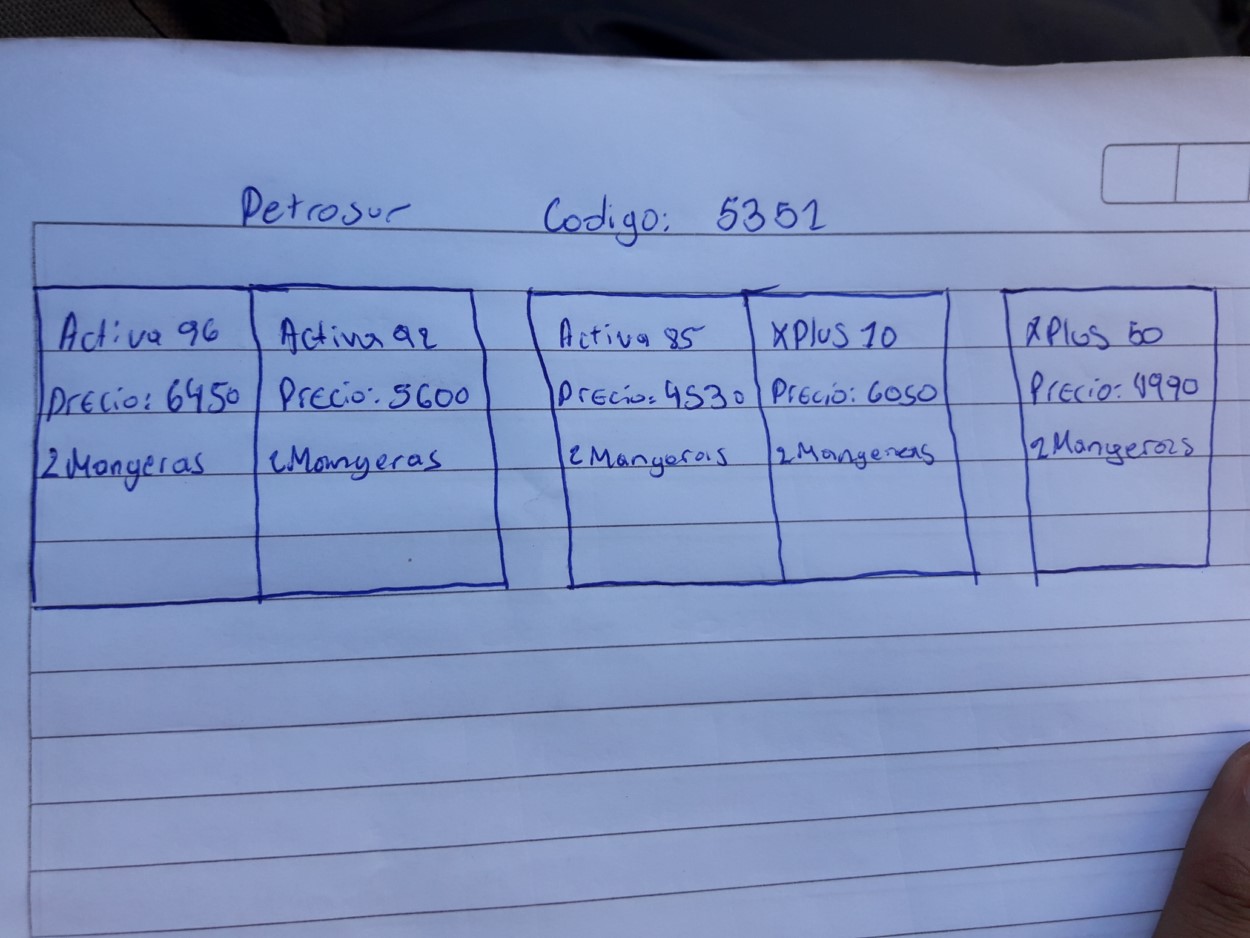 Petrosur Codigo: 5351
Activa 96 Activa 92 Activa 85 XPlus 10 XPlus 50
Precio: 6450 Precio: 5600 Precio: 4530 Precio: 6050 Precio: 4990
2 Mangeras 2 Mangeras 2 Mangeras 2 Mangeras 2 Mangeras